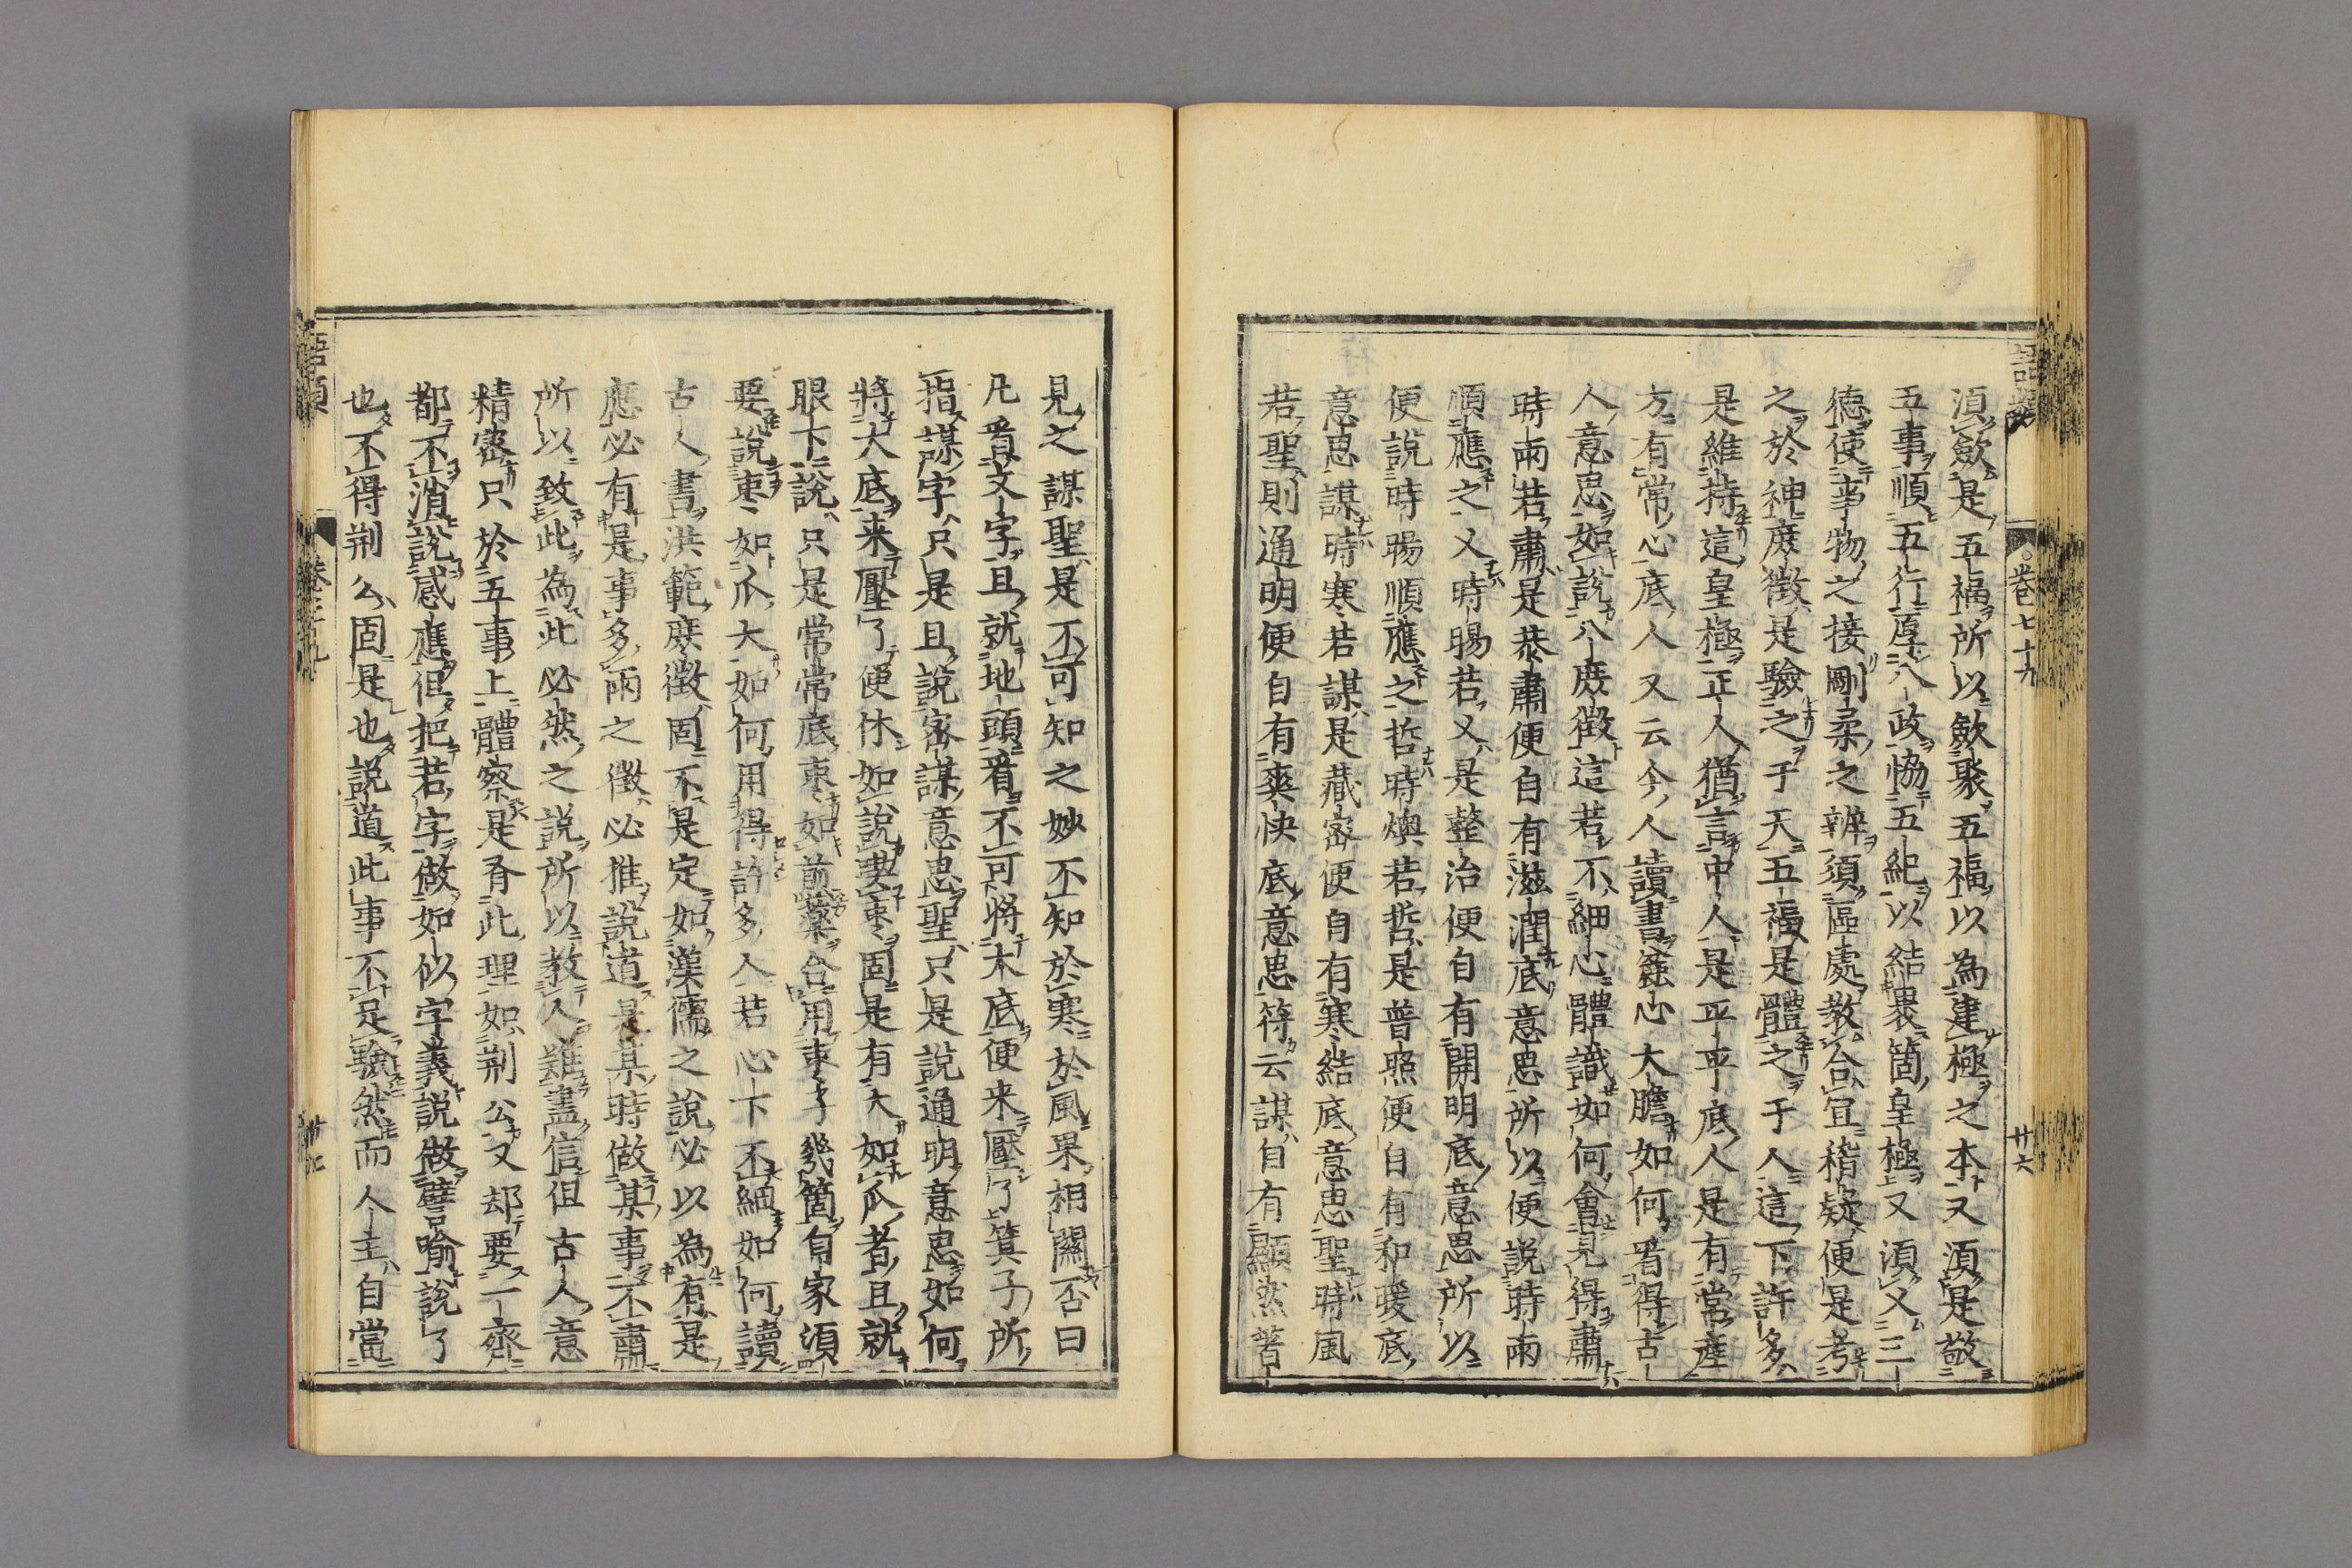 卷七十九
廿六
須歛是五福所以歛聚五福以為建極之本又須是敬
五事順五行厚八政恊五紀以結褁箇皇極又須乂三
德使事物之接剛柔之辨須區處教合宜稽疑便是考
之於神庶徵是驗之于天五福是體之于人這下許多
是維持這皇極正人猶言中人是平平底人是有常產
方有常心底人又云今人讀書麄心大膽如何㸔得古
人意思如說八庶徵這若不細心體識如何會見得肅
時雨若肅是恭肅便自有滋潤底意思所以便說時雨
順應之乂時暘若乂是整治便自有開明底意思所以
便說時暘順應之哲時燠若哲是普照便自有和暖底
意思謀時寒若謀是藏密便自有寒結底意思聖時風
若聖則通明便自有爽快底意思符云謀自有顯然著
見之謀聖是不可知之妙不知於寒於風果相關否曰
凡㸔文字且就地頭㸔不可將大底便来壓了箕子所
指謀字只是且說密謀意思聖只是說通明意思如何
將大底来壓了便休如說喫棗固是有大如瓜者且就
眼下說只是常常底棗如煎藥合用棗子幾箇自家須
要說棗如瓜大如何用得許多人若心下不細如何讀
古人書洪範庶徵固不是定如漢儒之說必以為有是
應必有是事多雨之徵必推說道是某時做某事不肅
所以致此為此必然之說所以教人難盡信但古人意
精密只於五事上體察是有此理如荆公又却要一齊
都不消說感應但把若字做如似字義說做譬喻說了
也不得荆公固是也說道此事不足驗然而人主自當
語類